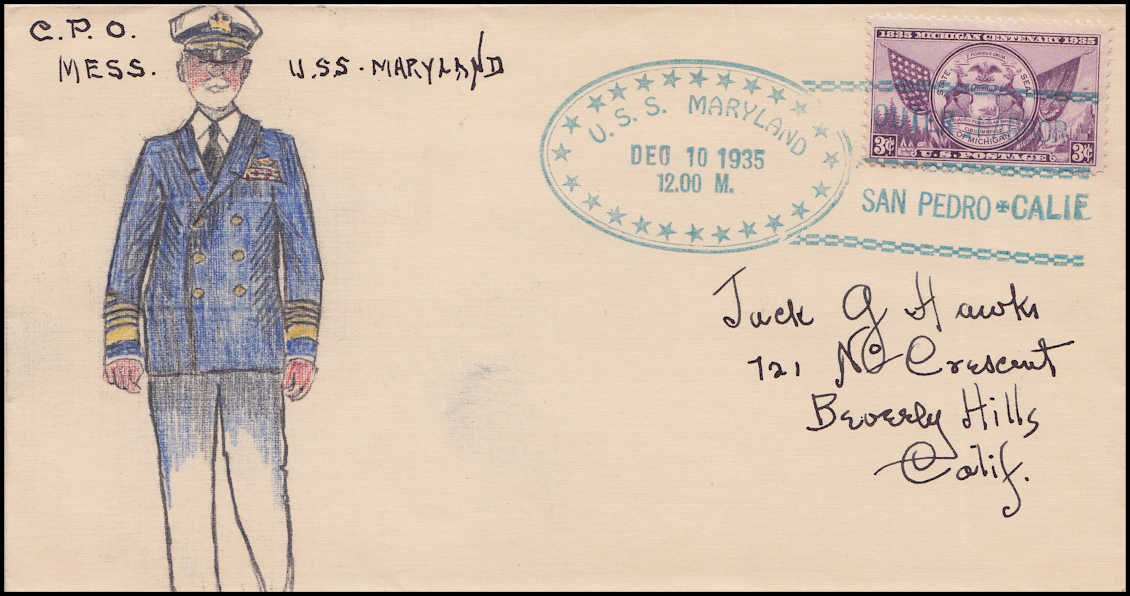 C.P.O.
MESS. U.SS. MARYLAND
U.S.S. MARYLAND
DEC 10 1935
12.00 M.
1835 MICHIGAN CENTENARY 1935
STATE SEAL
OF MICHIGAN
3¢ U.S. POSTAGE 3¢
OUTER HARBOR
SAN PEDRO CALIF
Jack G Hawks
721 No Crescent
Beverly Hills
Calif.